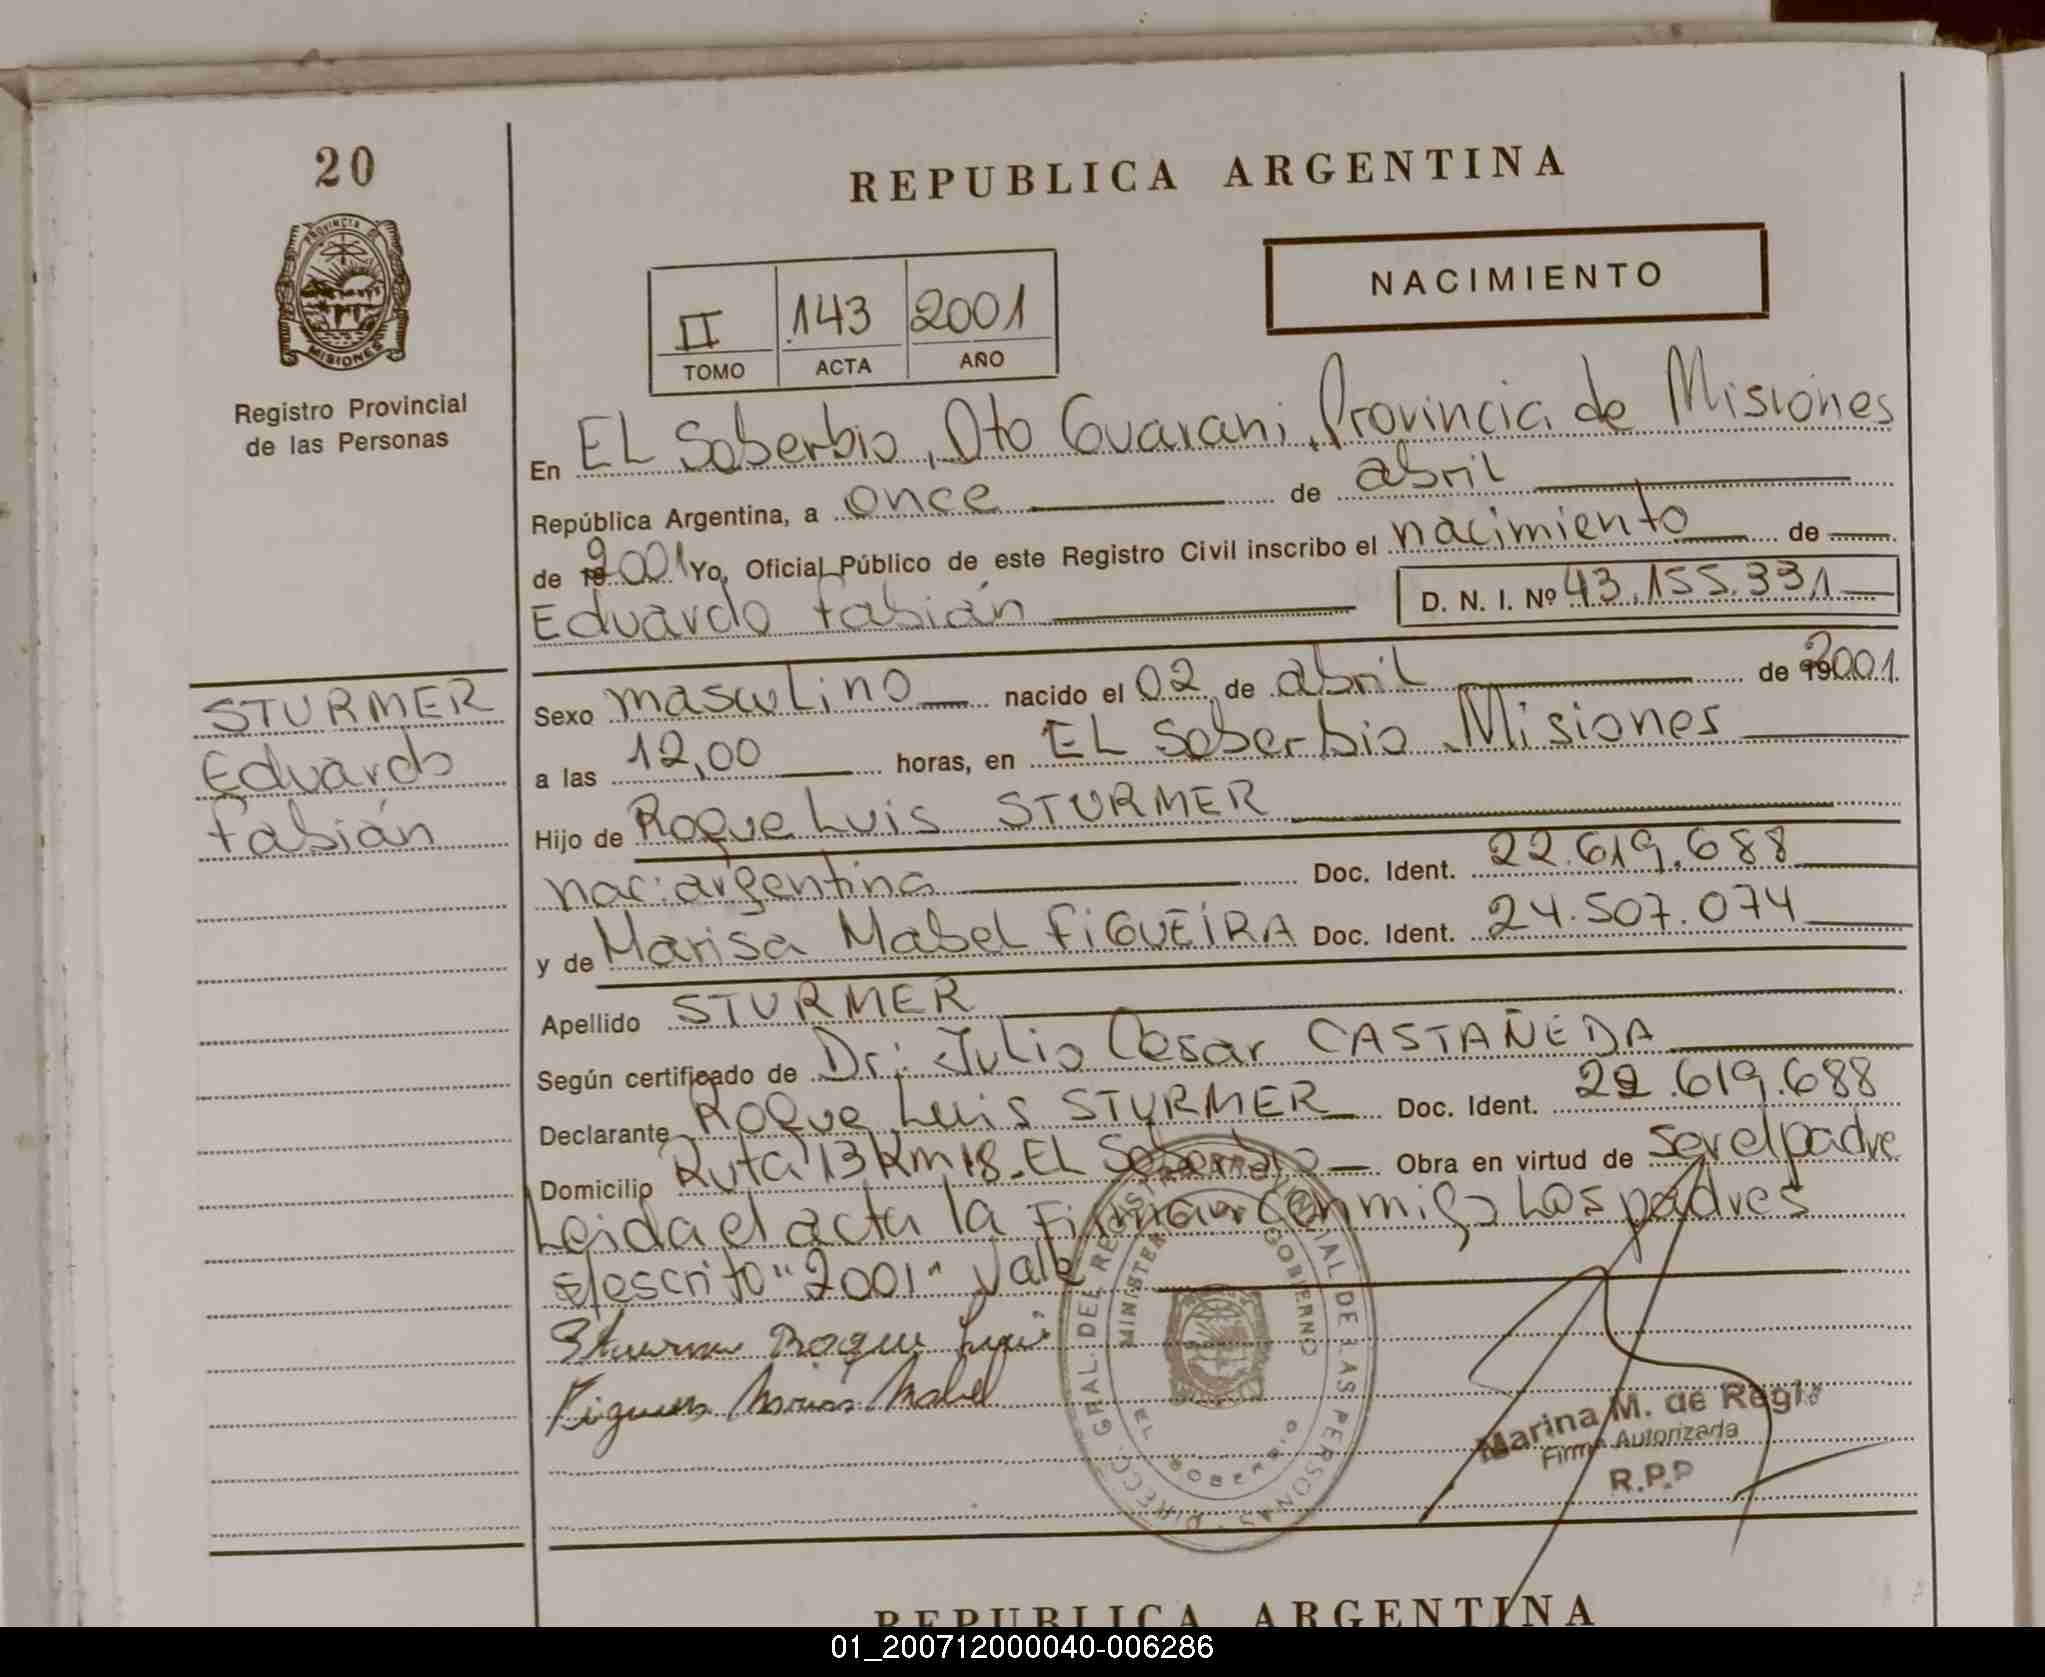 20
PROVINCIA DE
MISIONES
Registro Provincial
de las Personas
REPUBLICA ARGENTINA
II 143 2001
TOMO ACTA AÑO
NACIMIENTO
En EL Soberbio, Dto Guarani, Provincia de Misiones
República Argentina, a once de abril
de 192001 Yo, Oficial Público de este Registro Civil inscribo el nacimiento de
Eduardo Fabián D. N. I. Nº 43.155.331
STURMER
Eduardo
Fabián
Sexo masculino nacido el 02 de abril de 192001
a las 12,00 horas, en EL Soberbio, Misiones
Hijo de Roque Luis STURMER
nac: argentina Doc. Ident. 22.619.688
y de Marisa Mabel FIGUEIRA Doc. Ident. 24.507.074
Apellido STURMER
Según certificado de Dr: Julio Cesar CASTAÑEDA
Declarante Roque Luis STURMER Doc. Ident. 22.619.688
Domicilio Ruta 13 Km 18. EL Soberbio Obra en virtud de ser el padre
Leida el acta la Firman conmigo Los padres
s/escrito "2001" Vale
Roque Luis
Mabel
DIRECC. GRAL. DEL REGISTRO PROVINCIAL DE LAS PERSONAS
MINISTERIO GOBIERNO
EL SOBERBIO
Marina M. de Regis
Firma Autorizada
R.P.P
REPUBLICA ARGENTINA
01_200712000040-006286